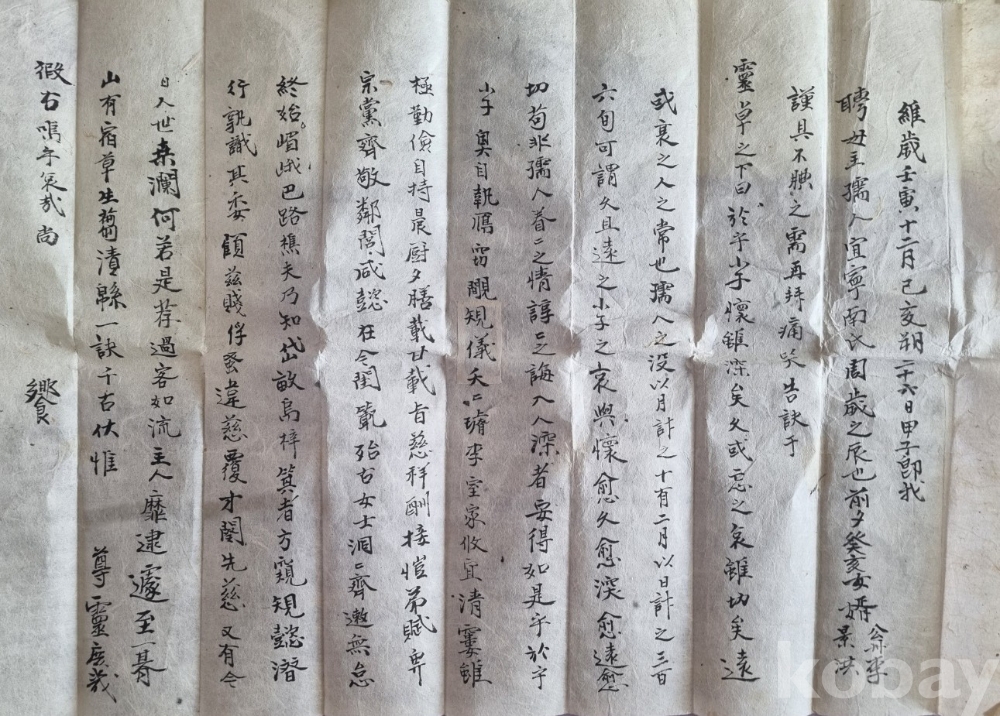 維歲壬寅十二月己亥朔二十六日甲子卽我
聘母孺人宜寧南氏周歲之辰也前夕癸亥女婿 李
謹具不腆之需再拜痛哭告訣于
靈卓之下曰於乎小子懷雖深矣久或忘之哀雖切矣遠
或衰之人之常也孺人之没以月計之十有二月以日計之三百
六旬可謂久且遠之小子之哀與懷愈久愈深愈遠愈
切苟非孺人眷二之情諄二之誨入人深者安得如是乎於乎
小子奧自執鴈 覿規儀夭二 李室家攸宜清 雖
極勤儉自持晨厨夕膳載甘載旨慈祥酬接愷弟賦畀
宗黨齊敬鄰閭咸懿在今閨範 古女士洞二齊遬無怠
終始嵋峨巴路樵夫乃知岱畝島梓箕者方窺規懿潛
行孰識其委顧玆賤俘 違慈覆才 先慈又有令
日人世桒瀾何若是荐過客如流主人靡逮遽至一朞
山有宿草生蒭漬緜一訣千古伏惟 尊靈庶幾
假右嗚乎哀哉尙
饗
kobay